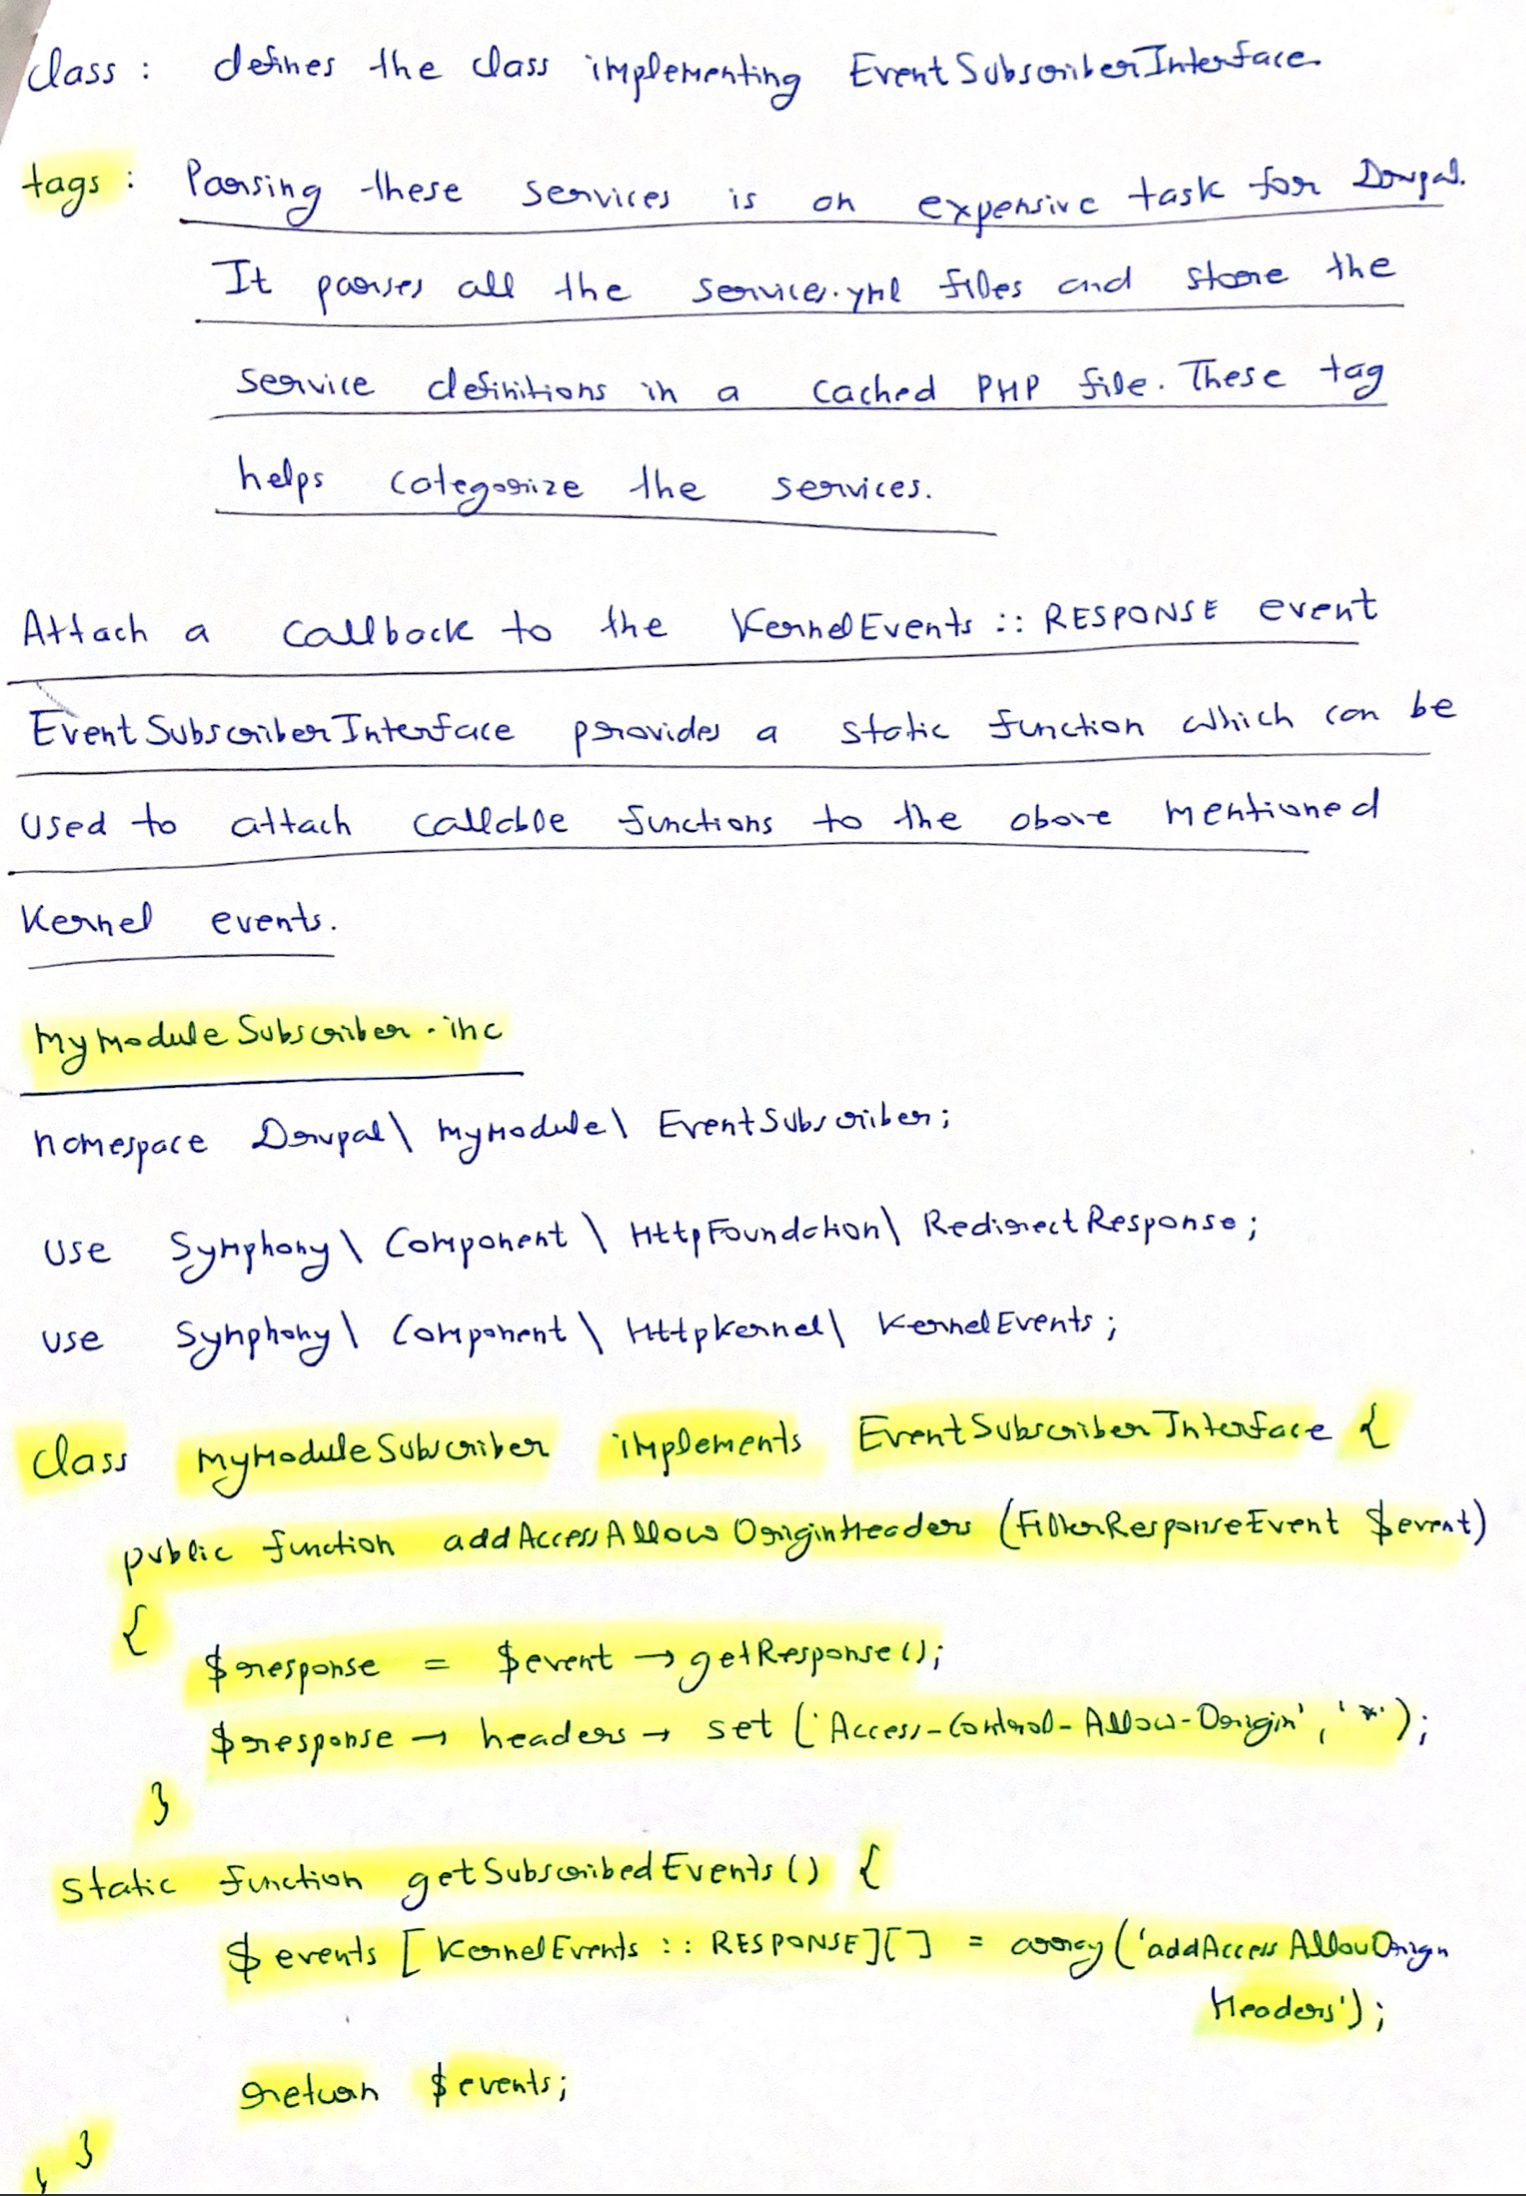 class : defines the class implementing EventSubscriberInterface.
tags : Parsing these services is an expensive task for Drupal.
It parses all the services.yml files and store the
service definitions in a cached PHP file. These tag
helps categorize the services.
Attach a callback to the KernelEvents :: RESPONSE event
EventSubscriberInterface provides a static function which can be
used to attach callable functions to the above mentioned
Kernel events.
MymoduleSubscriber.inc
namespace Drupal\ mymodule\ EventSubscriber;
use Symphony\ Component \ HttpFoundation\ RedirectResponse;
use Symphony\ Component \ HttpKernel\ KernelEvents;
class MymoduleSubscriber implements EventSubscriberInterface {
public function addAccessAllowOriginHeaders (FilterResponseEvent $event)
{
$response = $event → getResponse();
$response → headers → set ('Access-Control-Allow-Origin', '*');
}
static function getSubscribedEvents() {
$events [KernelEvents :: RESPONSE][] = array('addAccessAllowOrign
Headers');
return $events;
}
}